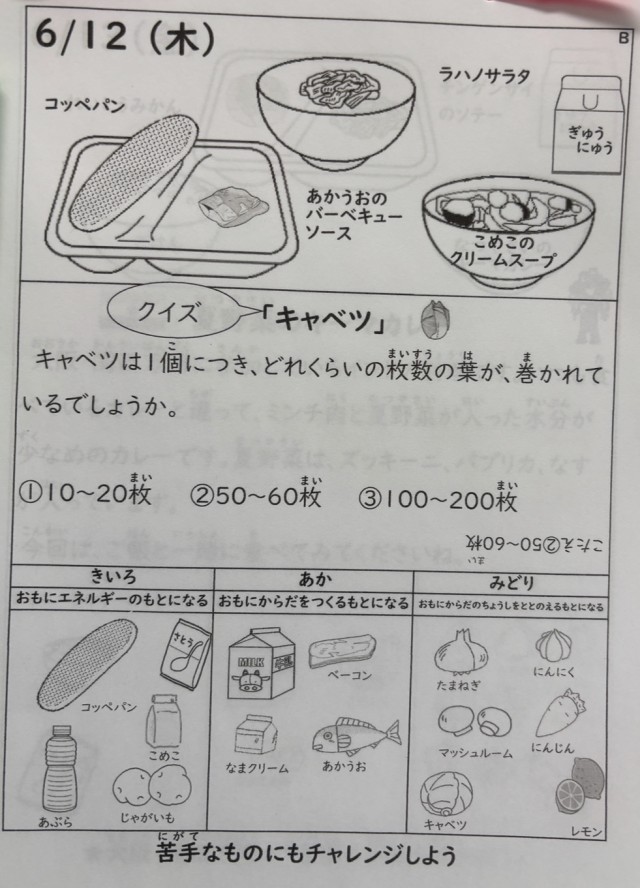 6/12(木)
B
コッペパン
ラハノサラタ
ぎゅう
にゅう
あかうおの
バーベキュー
ソース
こめこの
クリームスープ
クイズ
「キャベツ」
キャベツは1個につき、どれくらいの枚数の葉が、巻かれて
いるでしょうか。
①10~20枚 ②50~60枚 ③100~200枚
こたえ②50~60枚
きいろ あか みどり
おもにエネルギーのもとになる おもにからだをつくるもとになる おもにからだのちょうしをととのえるもとになる
コッペパン
さとう
こめこ
あぶら
じゃがいも
MILK
ベーコン
なまクリーム
あかうお
たまねぎ
にんにく
マッシュルーム
にんじん
キャベツ
レモン
苦手なものにもチャレンジしよう